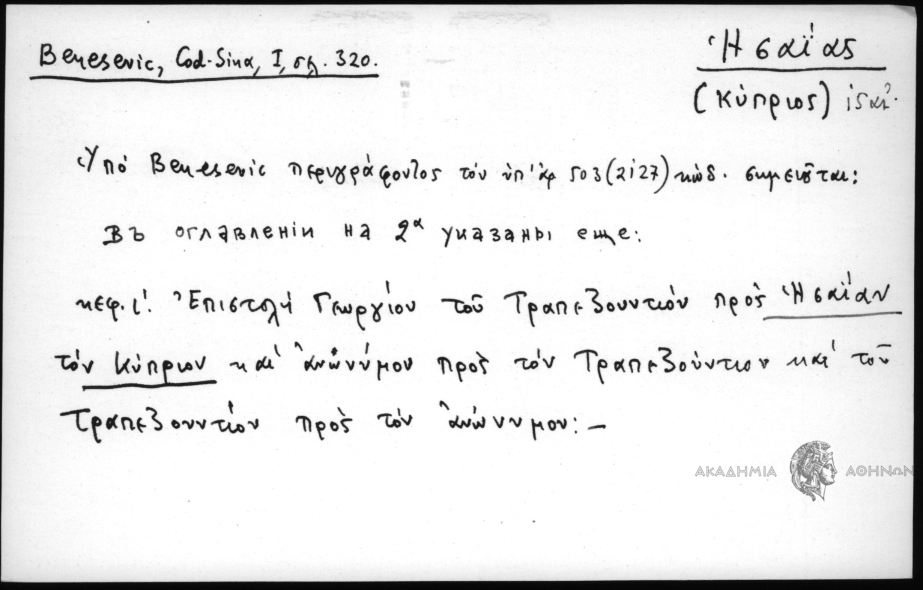 Benesevic, Cod-Sina, I, σλ. 320.
Ἡσαΐας
(Κύπριος)
Ὑπό Benesevic περιγράφοντος τόν ὑπ' ἀρ 503 (2127) κώδ. σημειοῦται:
Въ оглавленіи на 2α указаны еще:
κεφ. ι'. Ἐπιστολή Γεωργίου τοῦ Τραπεζουντίου πρὸς Ἡσαΐαν
τόν Κύπριον καί ἀνωνύμου πρὸς τόν Τραπεζούντιον καί τοῦ
Τραπεζουντίου πρὸς τόν ἀνώνυμον: —
ΑΚΑΔΗΜΙΑ ΑΘΗΝΩΝ